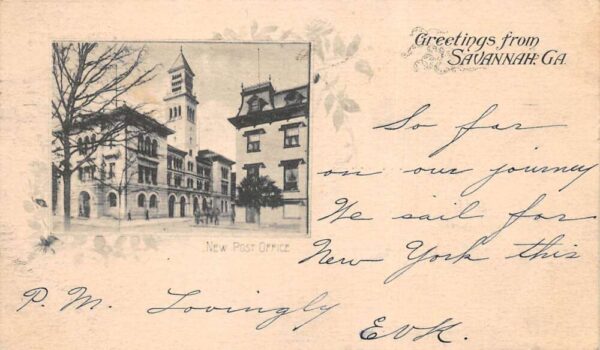 Greetings from
SAVANNAH, GA.
So far
on our journey
We sail for
New York this
P. M. Lovingly
EVK.
NEW POST OFFICE